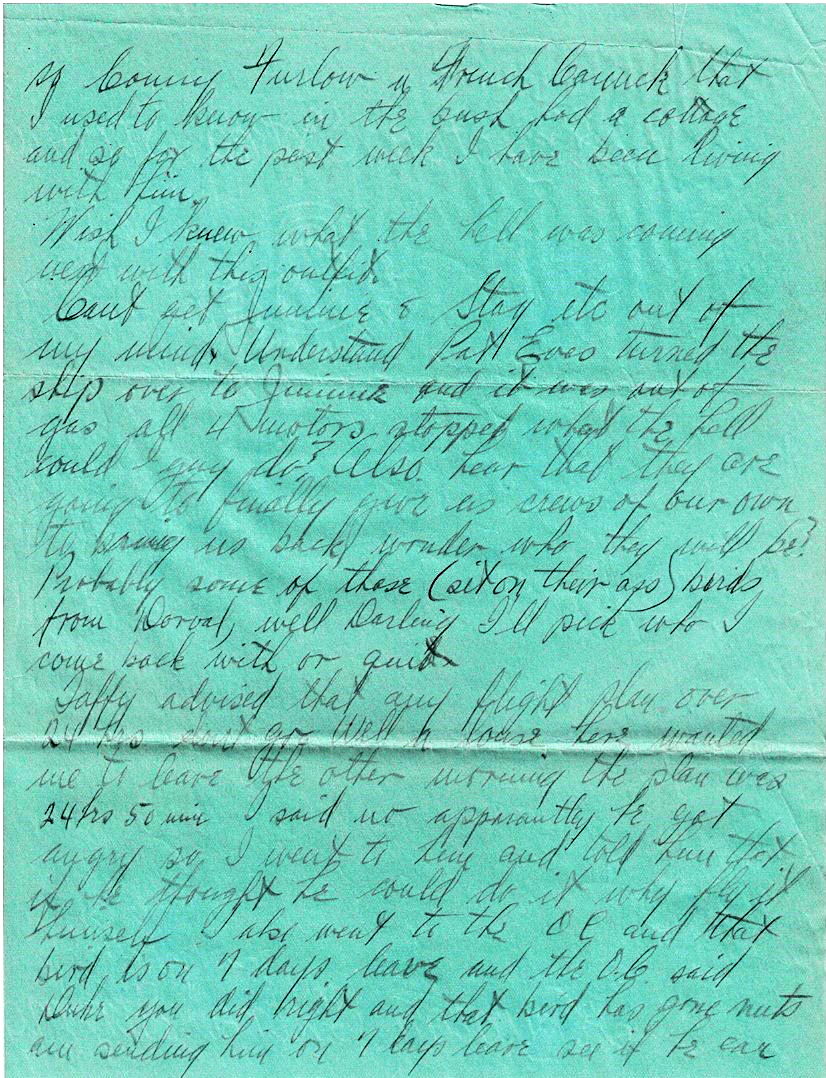 of Conny Furlow a French Canuck that
I used to know in the bush had a cottage
and so for the past week I have been living
with him.
Wish I knew what the hell was coming
next with this outfit.
Cant get Jimmie & Stay etc out of
my mind. Understand Pat Eves turned the
ship over to Jimmie and it was out of
gas all 4 motors stopped what the hell
could a guy do? Also hear that they are
going to finally give us crews of our own
to bring us back wonder who they will be?
Probably some of those (sit on their ass) birds
from Dorval, well Darling I'll pick who I
come back with or quit.
Taffy advised that any flight plan over
24 hrs dont go. Well a louse here wanted
me to leave the other morning the plan was
24 hrs 50 min I said no apparantly he got
angry so I went to him and told him that
if he thought he could do it why fly it
himself I also went to the O C and that
bird is on 7 days leave and the O.C. said
Duke you did right and that bird has gone nuts
am sending him on 7 days leave see if he can